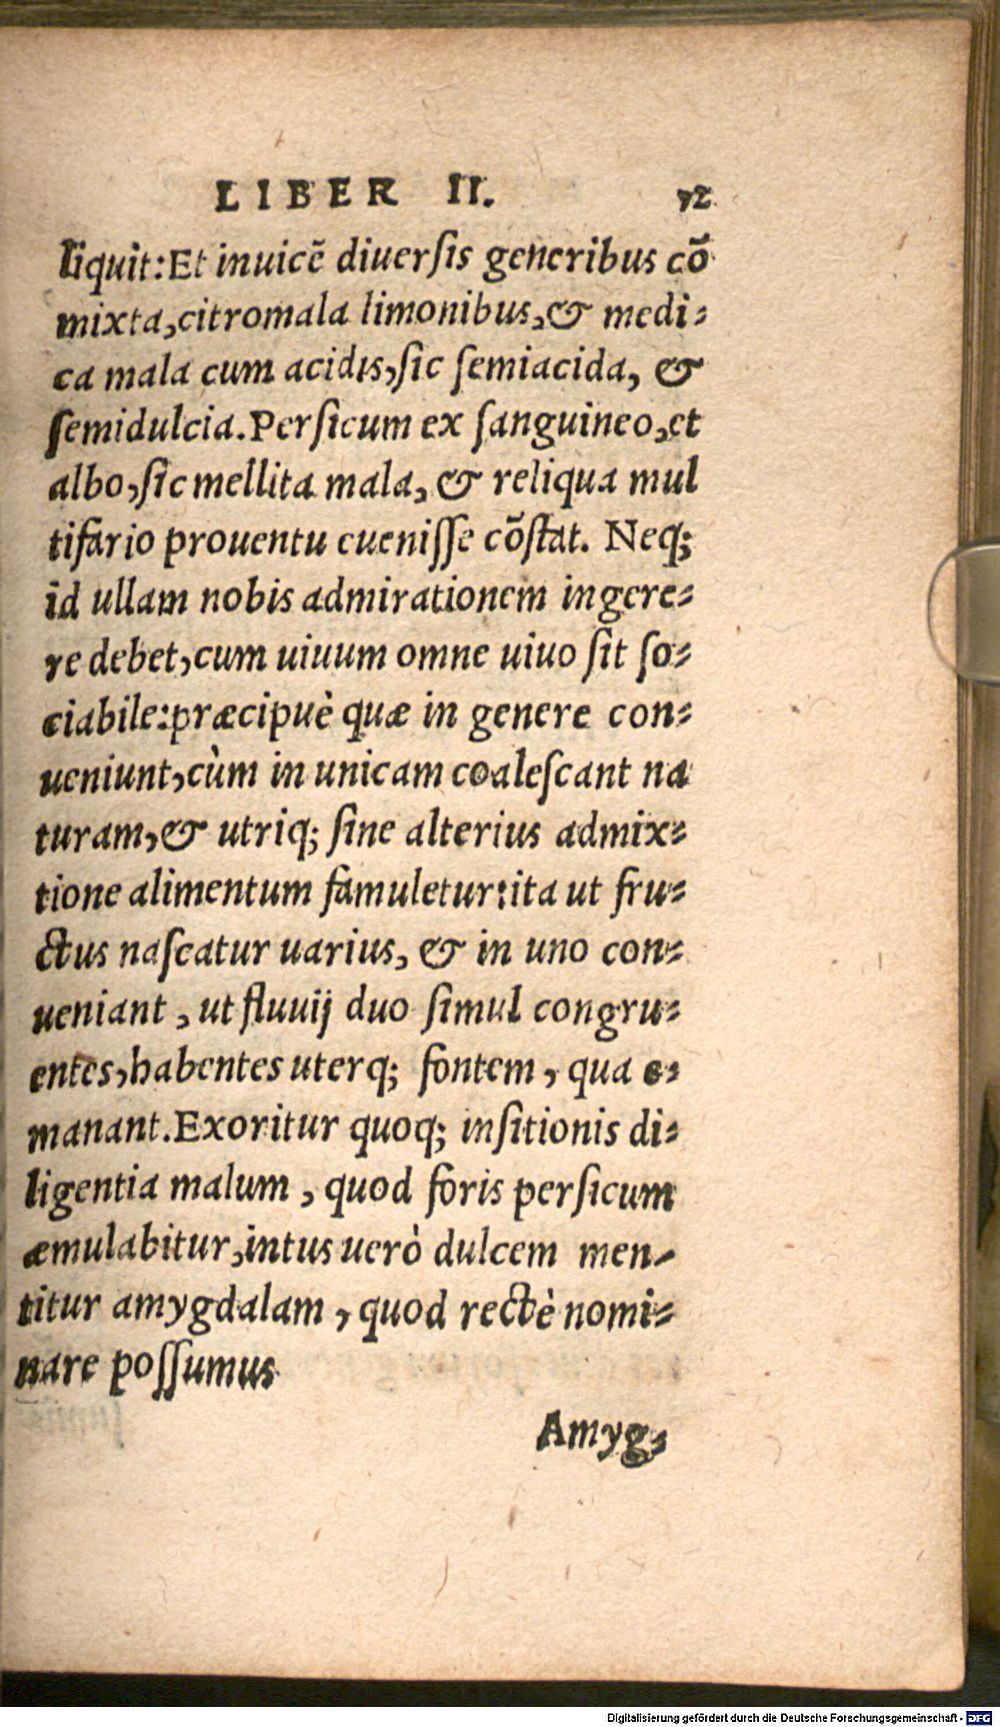 LIBER II. 72
liquit: Et inuicē diuersis generibus cō
mixta, citromala limonibus, & medi-
ca mala cum acidis, sic semiacida, &
semidulcia. Persicum ex sanguineo, et
albo, sic mellita mala, & reliqua mul
tifario prouentu euenisse cōstat. Neq;
id ullam nobis admirationem ingere-
re debet, cum uiuum omne uiuo sit so-
ciabile: præcipuè quæ in genere con-
ueniunt, cùm in unicam coalescant na
turam, & utriq; sine alterius admix-
tione alimentum famuletur: ita ut fru-
ctus nascatur uarius, & in uno con-
ueniant, ut fluuij duo simul congru-
entes, habentes uterq; fontem, qua e-
manant. Exoritur quoq; insitionis di-
ligentia malum, quod foris persicum
æmulabitur, intus uerò dulcem men-
titur amygdalam, quod rectè nomi-
nare possumus
Amyg-
Digitalisierung gefördert durch die Deutsche Forschungsgemeinschaft - DFG